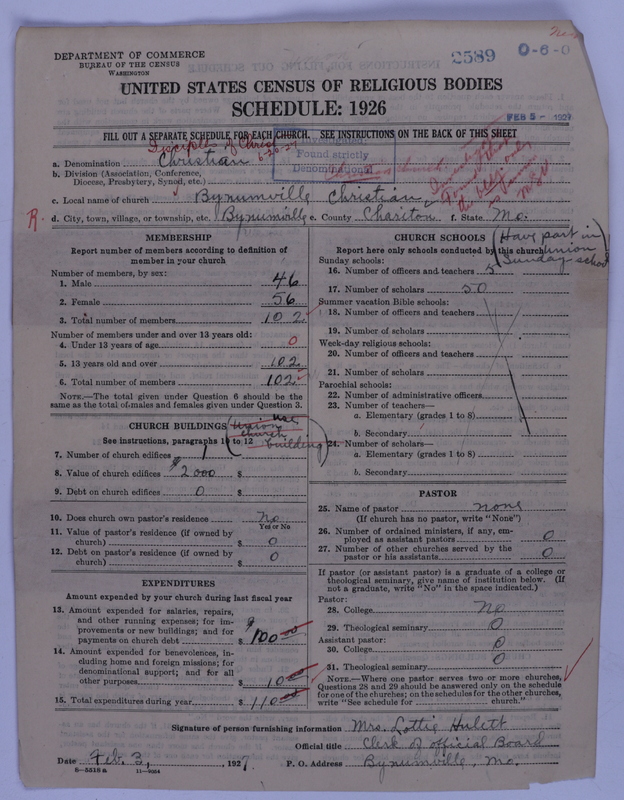 DEPARTMENT OF COMMERCE
BUREAU OF THE CENSUS
WASHINGTON
2589
0-6-0
UNITED STATES CENSUS OF RELIGIOUS BODIES
SCHEDULE: 1926
FEB 5 - 1927
FILL OUT A SEPARATE SCHEDULE FOR EACH CHURCH. SEE INSTRUCTIONS ON THE BACK OF THIS SHEET
Disciples of Christ
a. Denomination Christian
Found strictly
Denominational
b. Division (Association, Conference,
Diocese, Presbytery, Synod, etc.)
c. Local name of church Bynumville Christian
R d. City, town, village, or township, etc. Bynumville e. County Chariton f. State Mo.
MEMBERSHIP
Report number of members according to definition of
member in your church
Number of members, by sex:
1. Male 46
2. Female 56
3. Total number of members 102
Number of members under and over 13 years old:
4. Under 13 years of age 0
5. 13 years old and over 102
6. Total number of members 102
NOTE.—The total given under Question 6 should be
same as the total of males and females given under Question 3.
CHURCH BUILDINGS (Union use church building)
See instructions, paragraphs 10 to 12
7. Number of church edifices 1
8. Value of church edifices $2000 $
9. Debt on church edifices 0 $
10. Does church own pastor's residence No
Yes or No
11. Value of pastor's residence (if owned by
church) $ 0
12. Debt on pastor's residence (if owned by
church) $ 0
EXPENDITURES
Amount expended by your church during last fiscal year
13. Amount expended for salaries, repairs,
and other running expenses; for im-
provements or new buildings; and for
payments on church debt $ 100.00
14. Amount expended for benevolences, in-
cluding home and foreign missions; for
denominational support; and for all
other purposes $ 10.00
15. Total expenditures during year $ 110.00
CHURCH SCHOOLS (Have part in union Sunday school)
Report here only schools conducted by this church
Sunday schools:
16. Number of officers and teachers 5
17. Number of scholars 50
Summer vacation Bible schools:
18. Number of officers and teachers
19. Number of scholars
Week-day religious schools:
20. Number of officers and teachers
21. Number of scholars
Parochial schools:
22. Number of administrative officers
23. Number of teachers—
a. Elementary (grades 1 to 8)
b. Secondary
24. Number of scholars—
a. Elementary (grades 1 to 8)
b. Secondary
PASTOR
25. Name of pastor none
(If church has no pastor, write "None")
26. Number of ordained ministers, if any, em-
ployed as assistant pastors 0
27. Number of other churches served by the
pastor or his assistants 0
If pastor (or assistant pastor) is a graduate of a college or
theological seminary, give name of institution below. (If
not a graduate, write "No" in the space indicated.)
Pastor:
28. College No
29. Theological seminary 0
Assistant pastor:
30. College 0
31. Theological seminary 0
NOTE.—Where one pastor serves two or more churches,
Questions 28 and 29 should be answered only on the schedule
for one of the churches; on the schedules for the other churches,
write "See schedule for church."
Signature of person furnishing information Mrs. Lottie Hulett
Official title Clerk of official Board
Date Feb. 2, 1927. P. O. Address Bynumville, Mo.
8—5518 a 11—9054